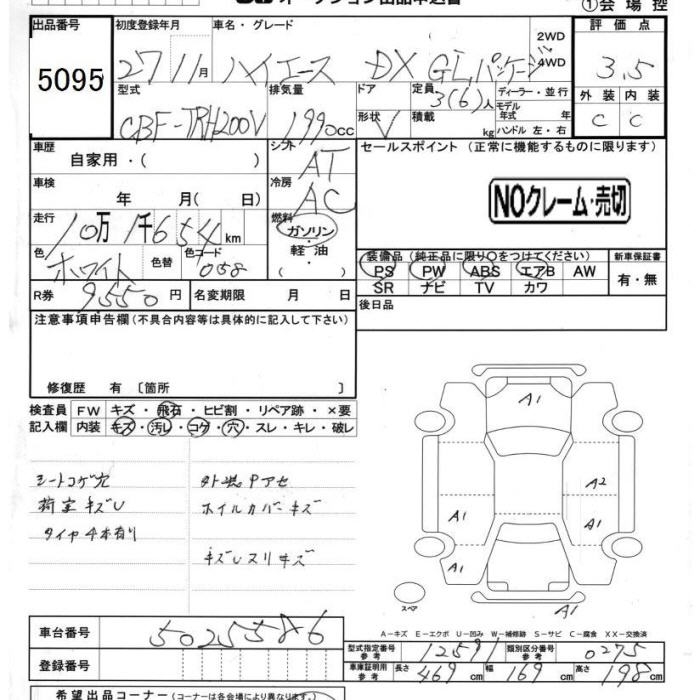 オークション出品申込書
①会場控
出品番号 5095
初度登録年月 27 11月
車名・グレード ハイエース DX GLパッケージ
2WD
4WD
評価点 3.5
外装 C 内装 C
型式 CBF-TRH200V
排気量 1990cc
ドア
形状 V
定員 3(6)人
積載 kg
ディーラー・並行
モデル年式 年
ハンドル 左・右
車歴 自家用・( )
シフト AT
セールスポイント(正常に機能するものに限ります)
NOクレーム・売切
車検 年 月( 日)
冷房 AC
走行 10万1千654km
燃料 ガソリン・軽油
色 ホワイト
色替
色コード 058
装備品(純正品に限り○をつけてください)
PS PW ABS エアB AW
SR ナビ TV カワ
新車保証書 有・無
R券 9550円
名変期限 月 日
後日品
注意事項申告欄(不具合内容等は具体的に記入して下さい)
修復歴 有 〔箇所 〕
検査員記入欄
FW キズ・飛石・ヒビ割・リペア跡・×要
内装 キズ・汚レ・コゲ・穴・スレ・キレ・破レ
シートコゲ穴
荷室キズU
タイヤ4本有り
外装Pアセ
ホイルカバーキズ
キズUスリキズ
A1
A2
A1
A1
A1
A1
スペア
A-キズ E-エクボ U-凹み W-補修跡 S-サビ C-腐食 XX-交換済
車台番号 5025586
登録番号
型式指定番号 参考 12591
類別区分番号 参考 0275
車庫証明用 参考 長さ 469cm 幅 169cm 高さ 198cm
希望出品コーナー(コーナーは各会場により異なります)